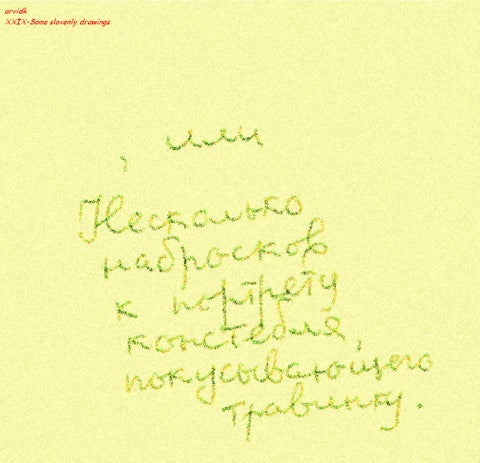 arvidk
XXIX-Some slovenly drawings
, или
Несколько
набросков
к портрету
констебля,
покусывающего
травинку.